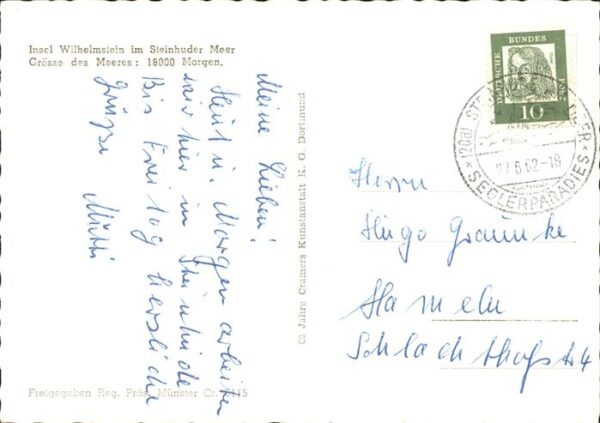 Insel Wilhelmstein im Steinhuder Meer
Grösse des Meeres: 18000 Morgen.
Meine Lieben!
Heut u. Morgen arbeiten
wir hier in Steinhude
Bis Freitag herzliche
Grüße Mutti
60 Jahre Cramers Kunstanstalt K. G. Dortmund
Freigegeben Reg. Präs. Münster Cr. 3115
DEUTSCHE BUNDES POST
10
(20a)
27.6.62-18
SEGLERPARADIES
Herrn
Hugo Graunke
Hameln
Schlachthofstr 4